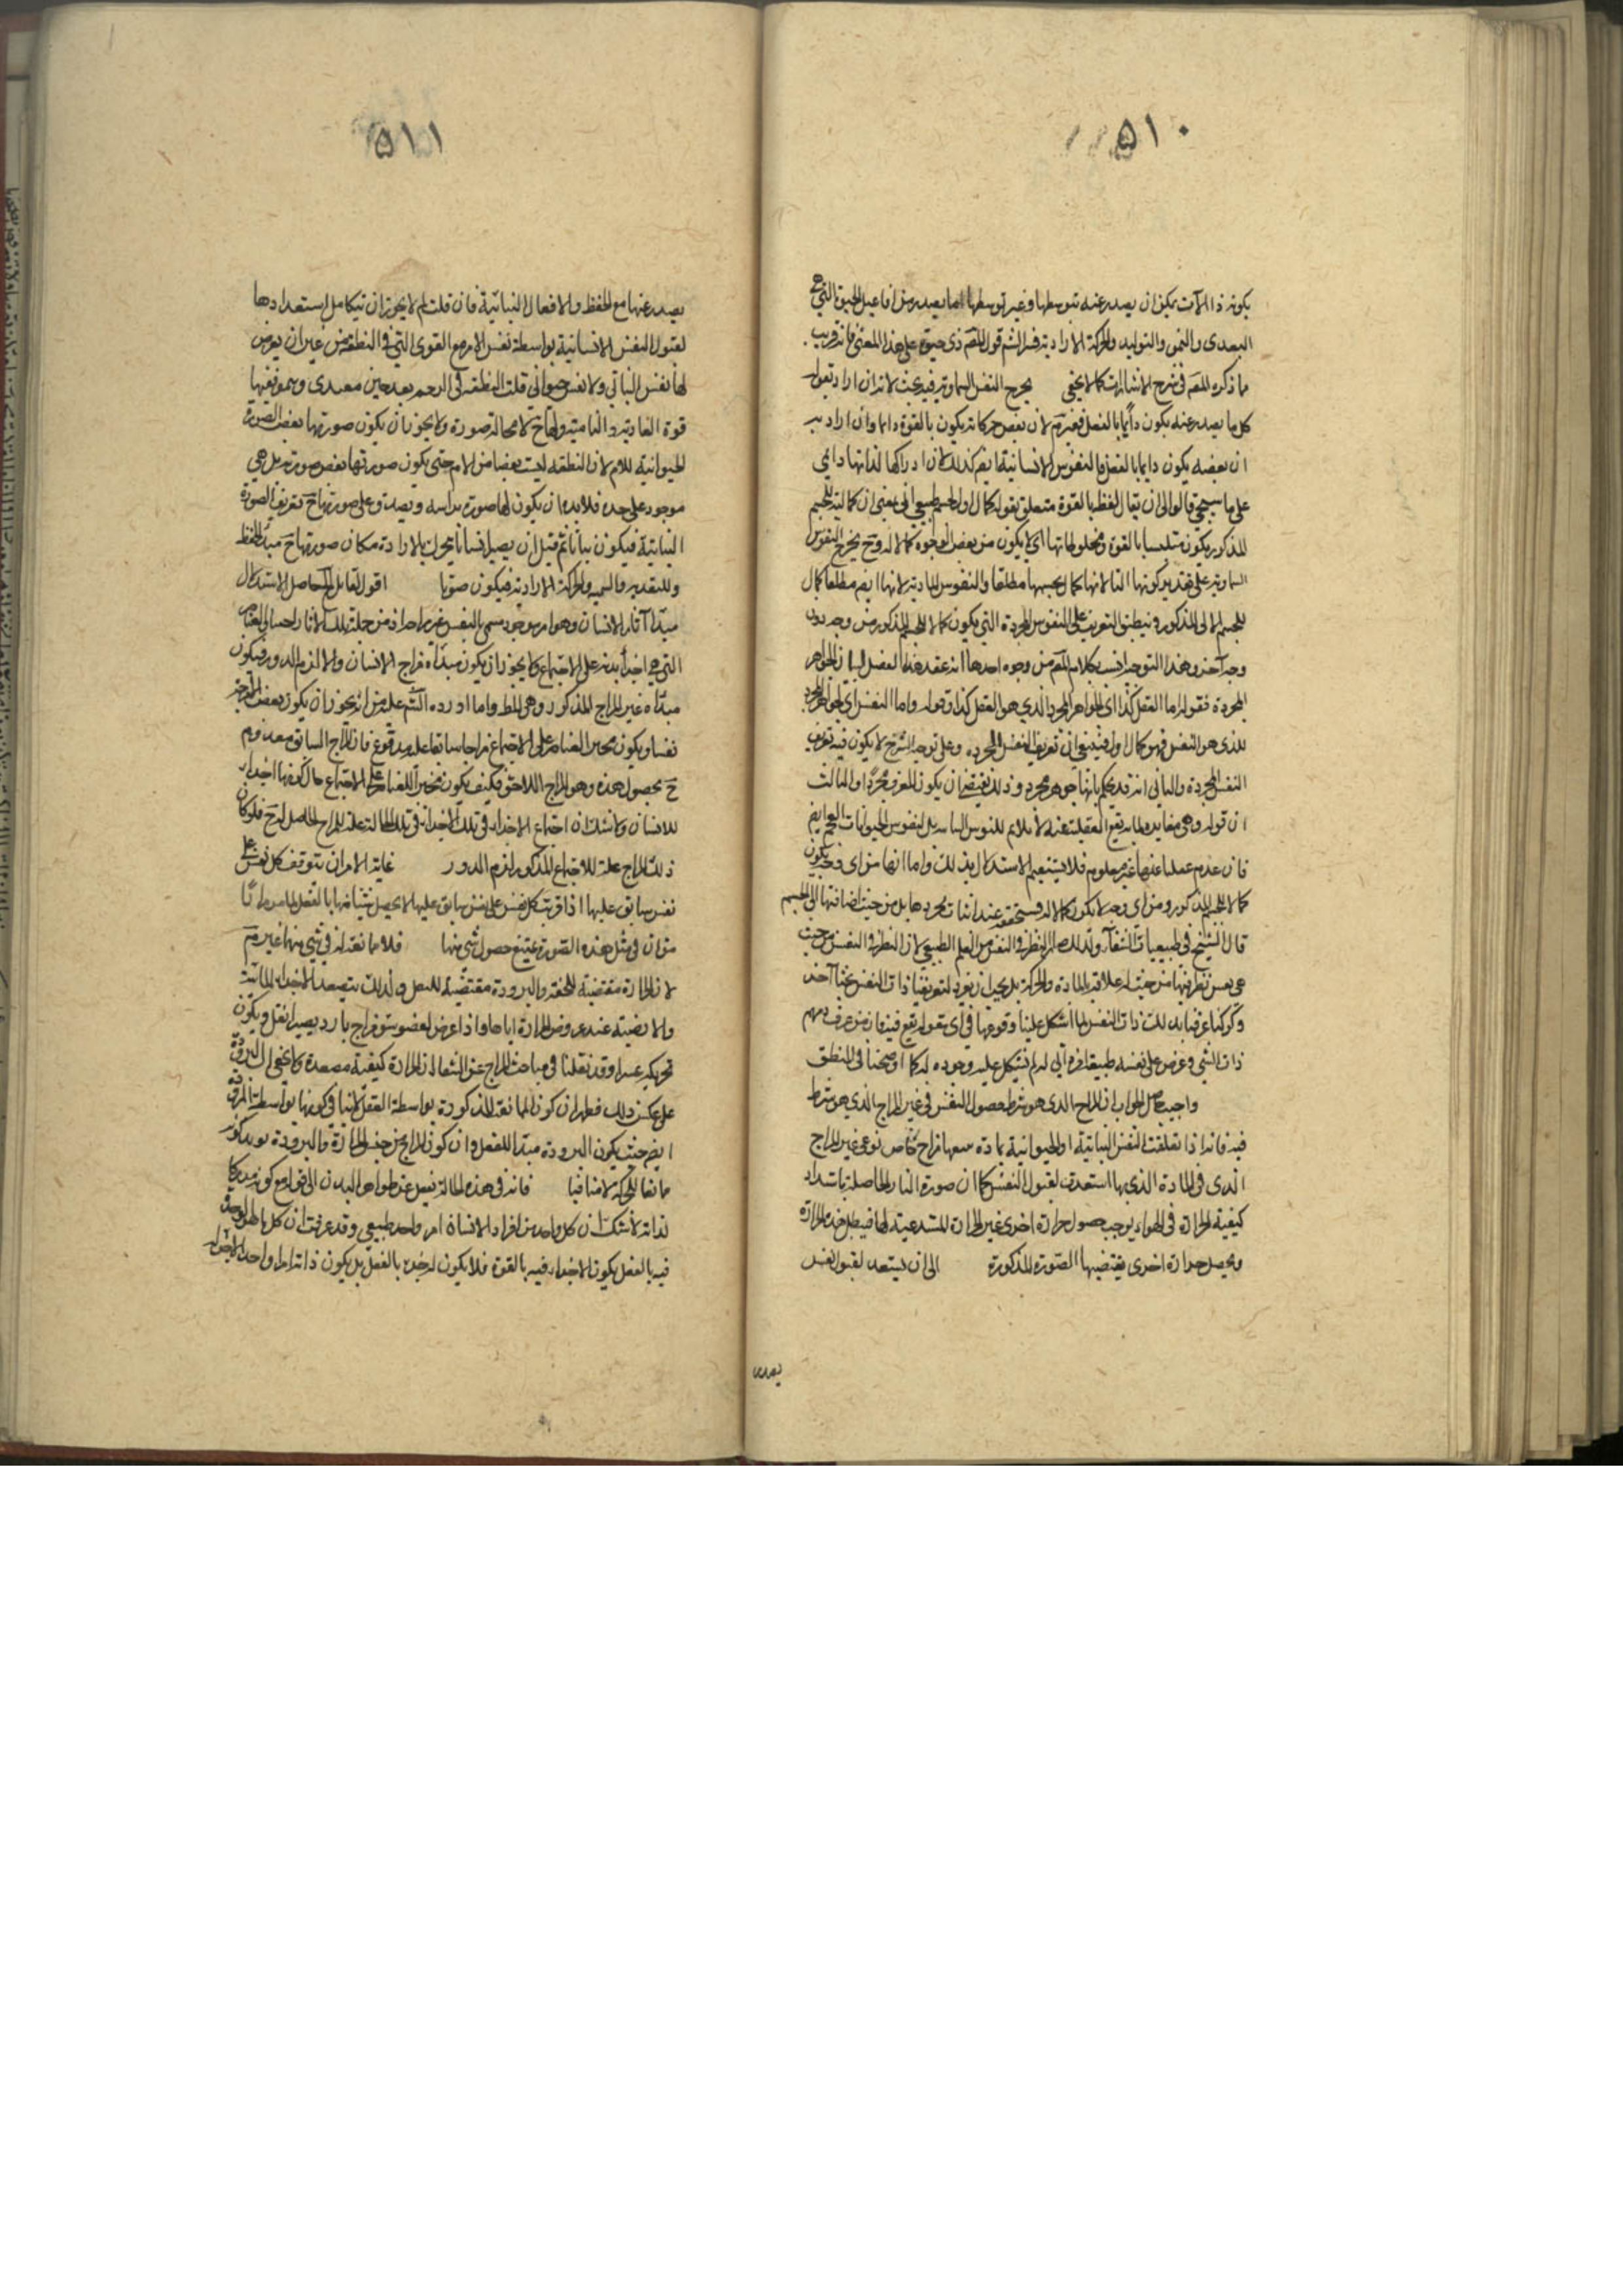 ٥١٠
يكونه ذا الآت يمكن ان يصدر عنه بتوسطها وغير توسطها ما يصدر من افاعيل الحيوة التي هي
التغذي والنمو والتوليد والحركة الارادية فسر الش قول المص ذي حيوة على هذا المعنى فانه قريب
ما ذكره المص في شرح الاشارات كما لا يخفى يخرج النفس السماوية فيه بحث لانه ان اراد بقوله
كل ما يصدر عنه يكون دائما بالفعل فغير تم لان بعض حركاته يكون بالقوة دائما وان اراد به
ان بعضه يكون دائما بالفعل فالنفوس الانسانية ايض كذلك لان ادراكها لذاتها دائمي
على ما سيجئ قالوا الى ان يقال لفظ بالقوة متعلق بقوله كمال اول لجسم طبيعي الي بمعنى ان كماليته للجسم
المذكور يكون متلبسا بالقوة ومخلوطا بها اي لا يكون من بعض الوجوه كمالا له وح يخرج النفوس
السماوية على تقدير كونها لانها كمال لجسمها مطلقا والنفوس المادية لانها ايض مطلقا كمال
للجسم الالي المذكور وينطبق التعريف على النفوس المجردة التي يكون كمالا للجسم المذكور من وجه دون
وجه آخر وهذا التوجيه انسب بكلام المص من وجوه احدها انه عقد هذا الفصل لبيان الجواهر
المجردة فقوله اما العقل كذا اي الجواهر المجرد الذي هو العقل كذا وقوله واما النفس اي الجواهر المجرد
الذي هو النفس فهو كمال اول فينبغي ان تعريف النفس المجرده وعلى توجيه الشرح لا يكون فيه تعريف
النفس المجردة والثاني انه قد يحكم بانها جوهر مجرد وذلك يقتضي ان يكون المعرف مجردا والثالث
ان قوله وهي مغايرة لما يقع الغفلة عنه لا يلائم النفوس النباتية بل نفوس الحيوانات العجم ايض
فان عدم غفلتها عنها غير معلوم فلا يستقيم الاستدلال بذلك واما انها من اي وجه يكون
كمالا للجسم المذكور ومن اي وجه لا يكون كمالا له فستحققه عند اثبات تجردها بل من حيث اضافتها الى الجسم
قال الشيخ في طبيعيات الشفآء ولذلك صار النظر في النفس من العلم الطبيعي لان النظر في النفس من حيث
هي نفس نظر فيها من حيث لها علاقة بالمادة والحركة بل يجب ان نفرد لتعريفنا ذات النفس بحثا آخر
ولو كنا عرفنا بذلك ذات النفس لما اشكل علينا وقوعها في اي مقولة يقع فيه فان من عرف وفهم
ذات الشئ وعرض على نفسه طبيعة امر ذاتي له لم يشكل عليه وجوده له كما اوضحنا في المنطق
واجيب حاصل الجواب ان المزاج الذي هو شرط حصول النفس في غير المزاج الذي هو شرط
فيه فانه اذا تعلقت النفس النباتية او الحيوانية بمادة معها مزاج خاص نوعي غير المزاج
الذي في المادة الذي بها استعدت لقبول النفس كما ان صورة النار الحاصلة باشتداد
كيفية الحرارة في الهواء يوجب حصول حرارة اخرى غير الحرارة المستدعية لها فيبطل هذه الحرارة
ويحصل حرارة اخرى يقتضيها الصورة المذكورة الى ان يستعد لقبول نفس
يصدر
٥١١
يصدر عنها مع الحفظ والافعال النباتية فان قلت لم لا يجوز ان يتكامل استعدادها
لقبول النفس الانسانية بواسطة نفس الام مع القوى التي في النطفة من غير ان يفيض
لها نفس النباتي ولا نفس حيواني قلت النطفة في الرحم بعد حين معتدي وينمو ففيها
قوة الغاذية والنامية ولها ح لا محالة صورة ولا يجوز ان يكون صورتها بعض الصورة
الحيوانية للام لان النطفة ليست بعضا من الام حتى يكون صورتها بعض صورته بل هي
موجود على حدة فلا بد ان يكون لها صورة براسه ويصدق على صورتها ح تعريف الصورة
النباتية فيكون نباتا ثم قبل ان يصير انسانا يتحرك بالارادة مكان صورتها ح مبدأ للحفظ
وللتغذية والتنمية والحركة الارادية فيكون حيوانا اقول لقائل حاصل الاستدلال
مبدأ آثار الانسان وهو امر موجود مسمى بالنفس غير اجزاء اذ من جملة تلك الاثار اجبار العناصر
التي هي اجزأ بدنه على الاجتماع ولا يجوز ان يكون مبدأه مزاج الانسان والا لزم الدور فيكون
مبدأه غير المزاج المذكور وهي المط واما اورده الش على من انه يجوز ان يكون بعض الامزجة
نفسا ويكون مجبر العناصر على الاجتماع مزاجا سابقا عليه مدفوع فان المزاج السابق معدوم
ح بحصول هذه وهو المزاج اللاحق فكيف يكون مجبرا للعناصر على الاجتماع حال كونها اجزاء
للانسان ولا شك ان اجتماع الاجزاء في تلك الاجزاء في تلك الحالة علة للمزاج الحاصل له ح فلو كان
ذلك المزاج علة للاجتماع المذكور لزم الدور غاية الامر ان يتوقف كل نفس على
نفس سابق عليها اذا ترتب كل نفس على نفس سابق عليها لا يحصل شيئا منها بالفعل لما مر مرارا
من ان في مثل هذه الصورة يمتنع حصول شئ منها فلا ممانعة له في شئ منها غير تم
لان الحرارة مقتضية للخفة والبرودة مقتضية للثقل ولذلك يتصعد الاجزاء المائية
والارضية عند عروض الحرارة اياها واذا عرض لعضو سوء مزاج بارد يصير اثقل ويكون
تحريكه عسرا وقد نقلنا في مباحث المزاج عن الشفا ان الحرارة كيفية مصعدة ولا يخفى ان البرودة
على عكس ذلك فظهر ان كون الممانعة المذكورة بواسطة الثقل لا ينافي كونها بواسطة المزاج
ايض حيث يكون البرودة مبدأ للثقل وان كون المزاج من جنس الحرارة والبرودة يؤيد كونه
مانعا للحركة لا منافيا فانه في هذه الحالة يغفل عن ظواهر البدن الى قوله مع كونه مدركا
لذاته لا شك ان كل واحد من افراد الانسان امر واحد طبيعي وقد عرفت ان كل ما هو الوحدة
فيه بالفعل يكون الاجزاء فيه بالقوة فلا يكون له جزء بالفعل بل يكون ذاته امرا واحدا